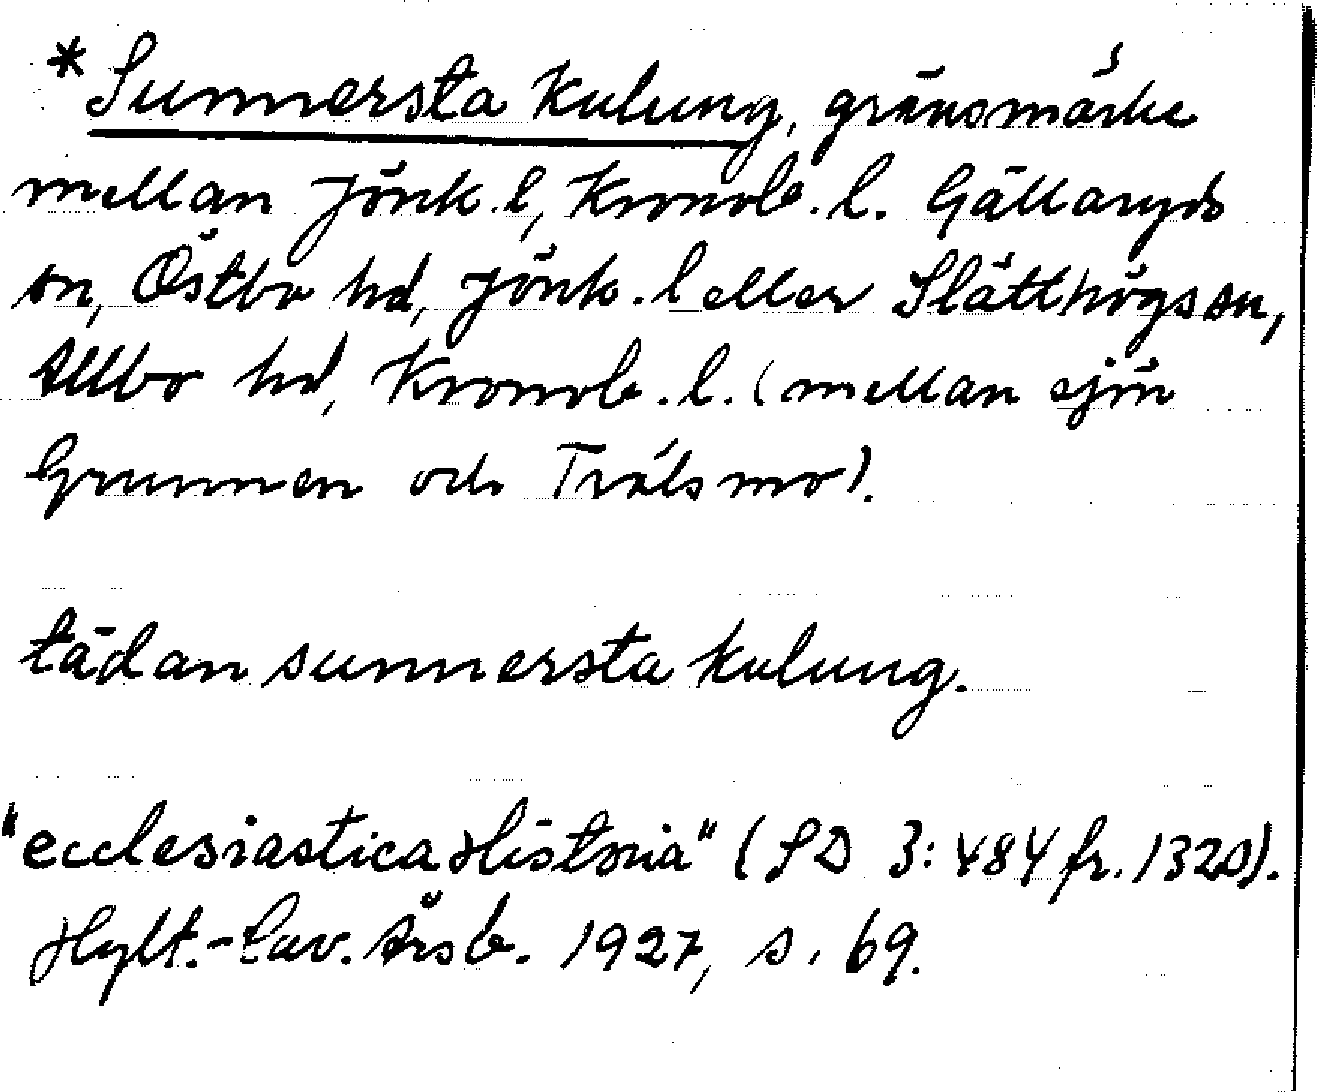 *Sunnersta Kulung, gränsmärke
mellan Jönk. l, Kronob. l. Gällaryds
sn, Östbo hd, Jönk. l eller Slätthögs sn,
Allbo hd, Kronob. l. (mellan sjön
Grunnen och Trälsmo).
tädan sunnersta kulung.
"ecclesiastica Historia" (SD 3: 484 fr. 1320).
Hylt.-Cav. Årsb. 1927, s. 69.